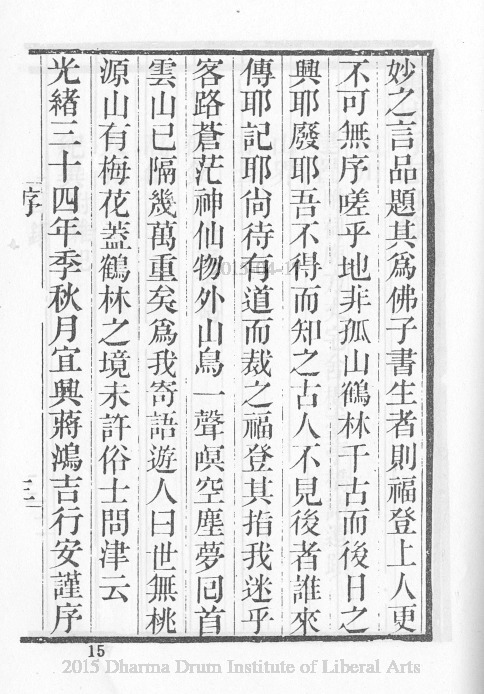 妙之言品題其爲佛子書生者則福登上人更
不可無序嗟乎地非孤山鶴林千古而後日之
興耶廢耶吾不得而知之古人不見後者誰來
傳耶記耶尙待有道而裁之福登其揞我迷乎
客路蒼茫神仙物外山鳥一聲嗔空塵夢回首
雲山已隔幾萬重矣爲我寄語遊人曰世無桃
源山有梅花蓋鶴林之境未許俗士問津云
光緒三十四年季秋月宜興蔣鴻吉行安謹序
序
三
15
2015 Dharma Drum Institute of Liberal Arts